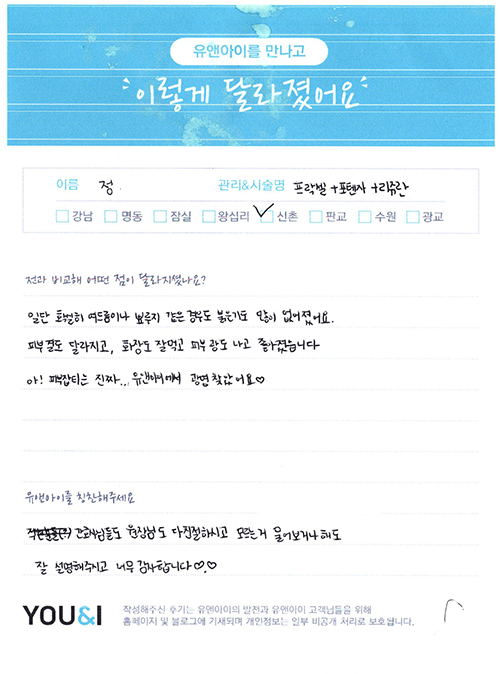 유앤아이를 만나고
이렇게 달라졌어요
이름 정 관리&시술명 프락셀 + 포텐자 + 리쥬란
강남 명동 잠실 왕십리 신촌 판교 수원 광교
전과 비교해 어떤 점이 달라지셨나요?
일단 확실히 여드름이나 뾰루지 같은 경우도 붉은기도 많이 없어졌어요.
피부결도 달라지고, 화장도 잘먹고 피부 광도 나고 좋아졌습니다
아! 피부잡티는 진짜... 유앤아이에서 광명찾았어요♡
유앤아이를 칭찬해주세요
간호사님들도 원장님도 다친절하시고 모르는거 물어보거나해도
잘 설명해주시고 너무 감사합니다♡.♡
YOU&I
작성해주신 후기는 유앤아이의 발전과 유앤아이 고객님들을 위해
홈페이지 및 블로그에 기재되며 개인정보는 일부 비공개 처리로 보호됩니다.